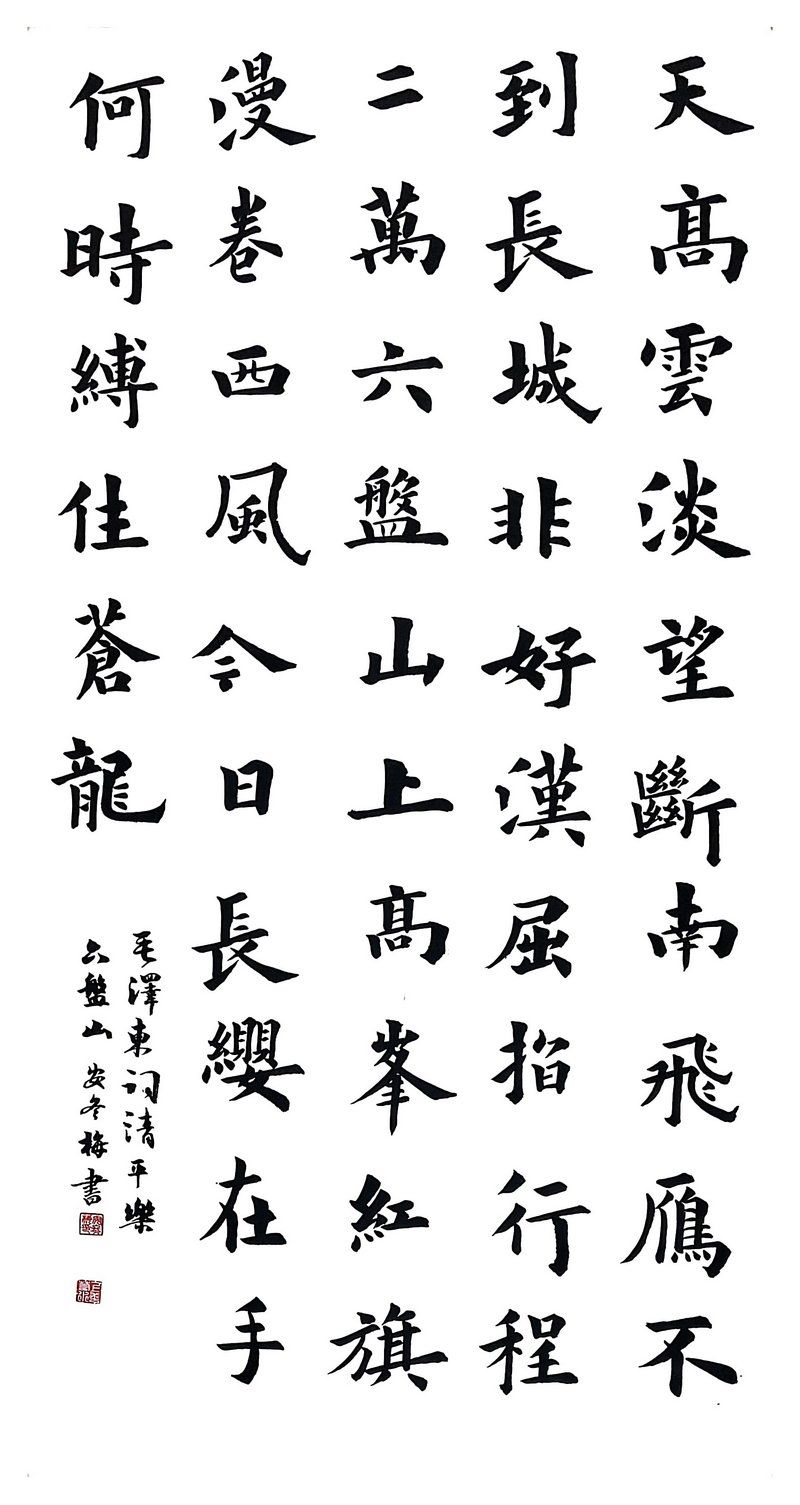 天高雲淡望斷南飛鴈不
到長城非好漢屈指行程
二萬六盤山上高峯紅旗
漫卷西風今日長纓在手
何時縛住蒼龍
毛澤東詞清平樂
六盤山 安冬梅書